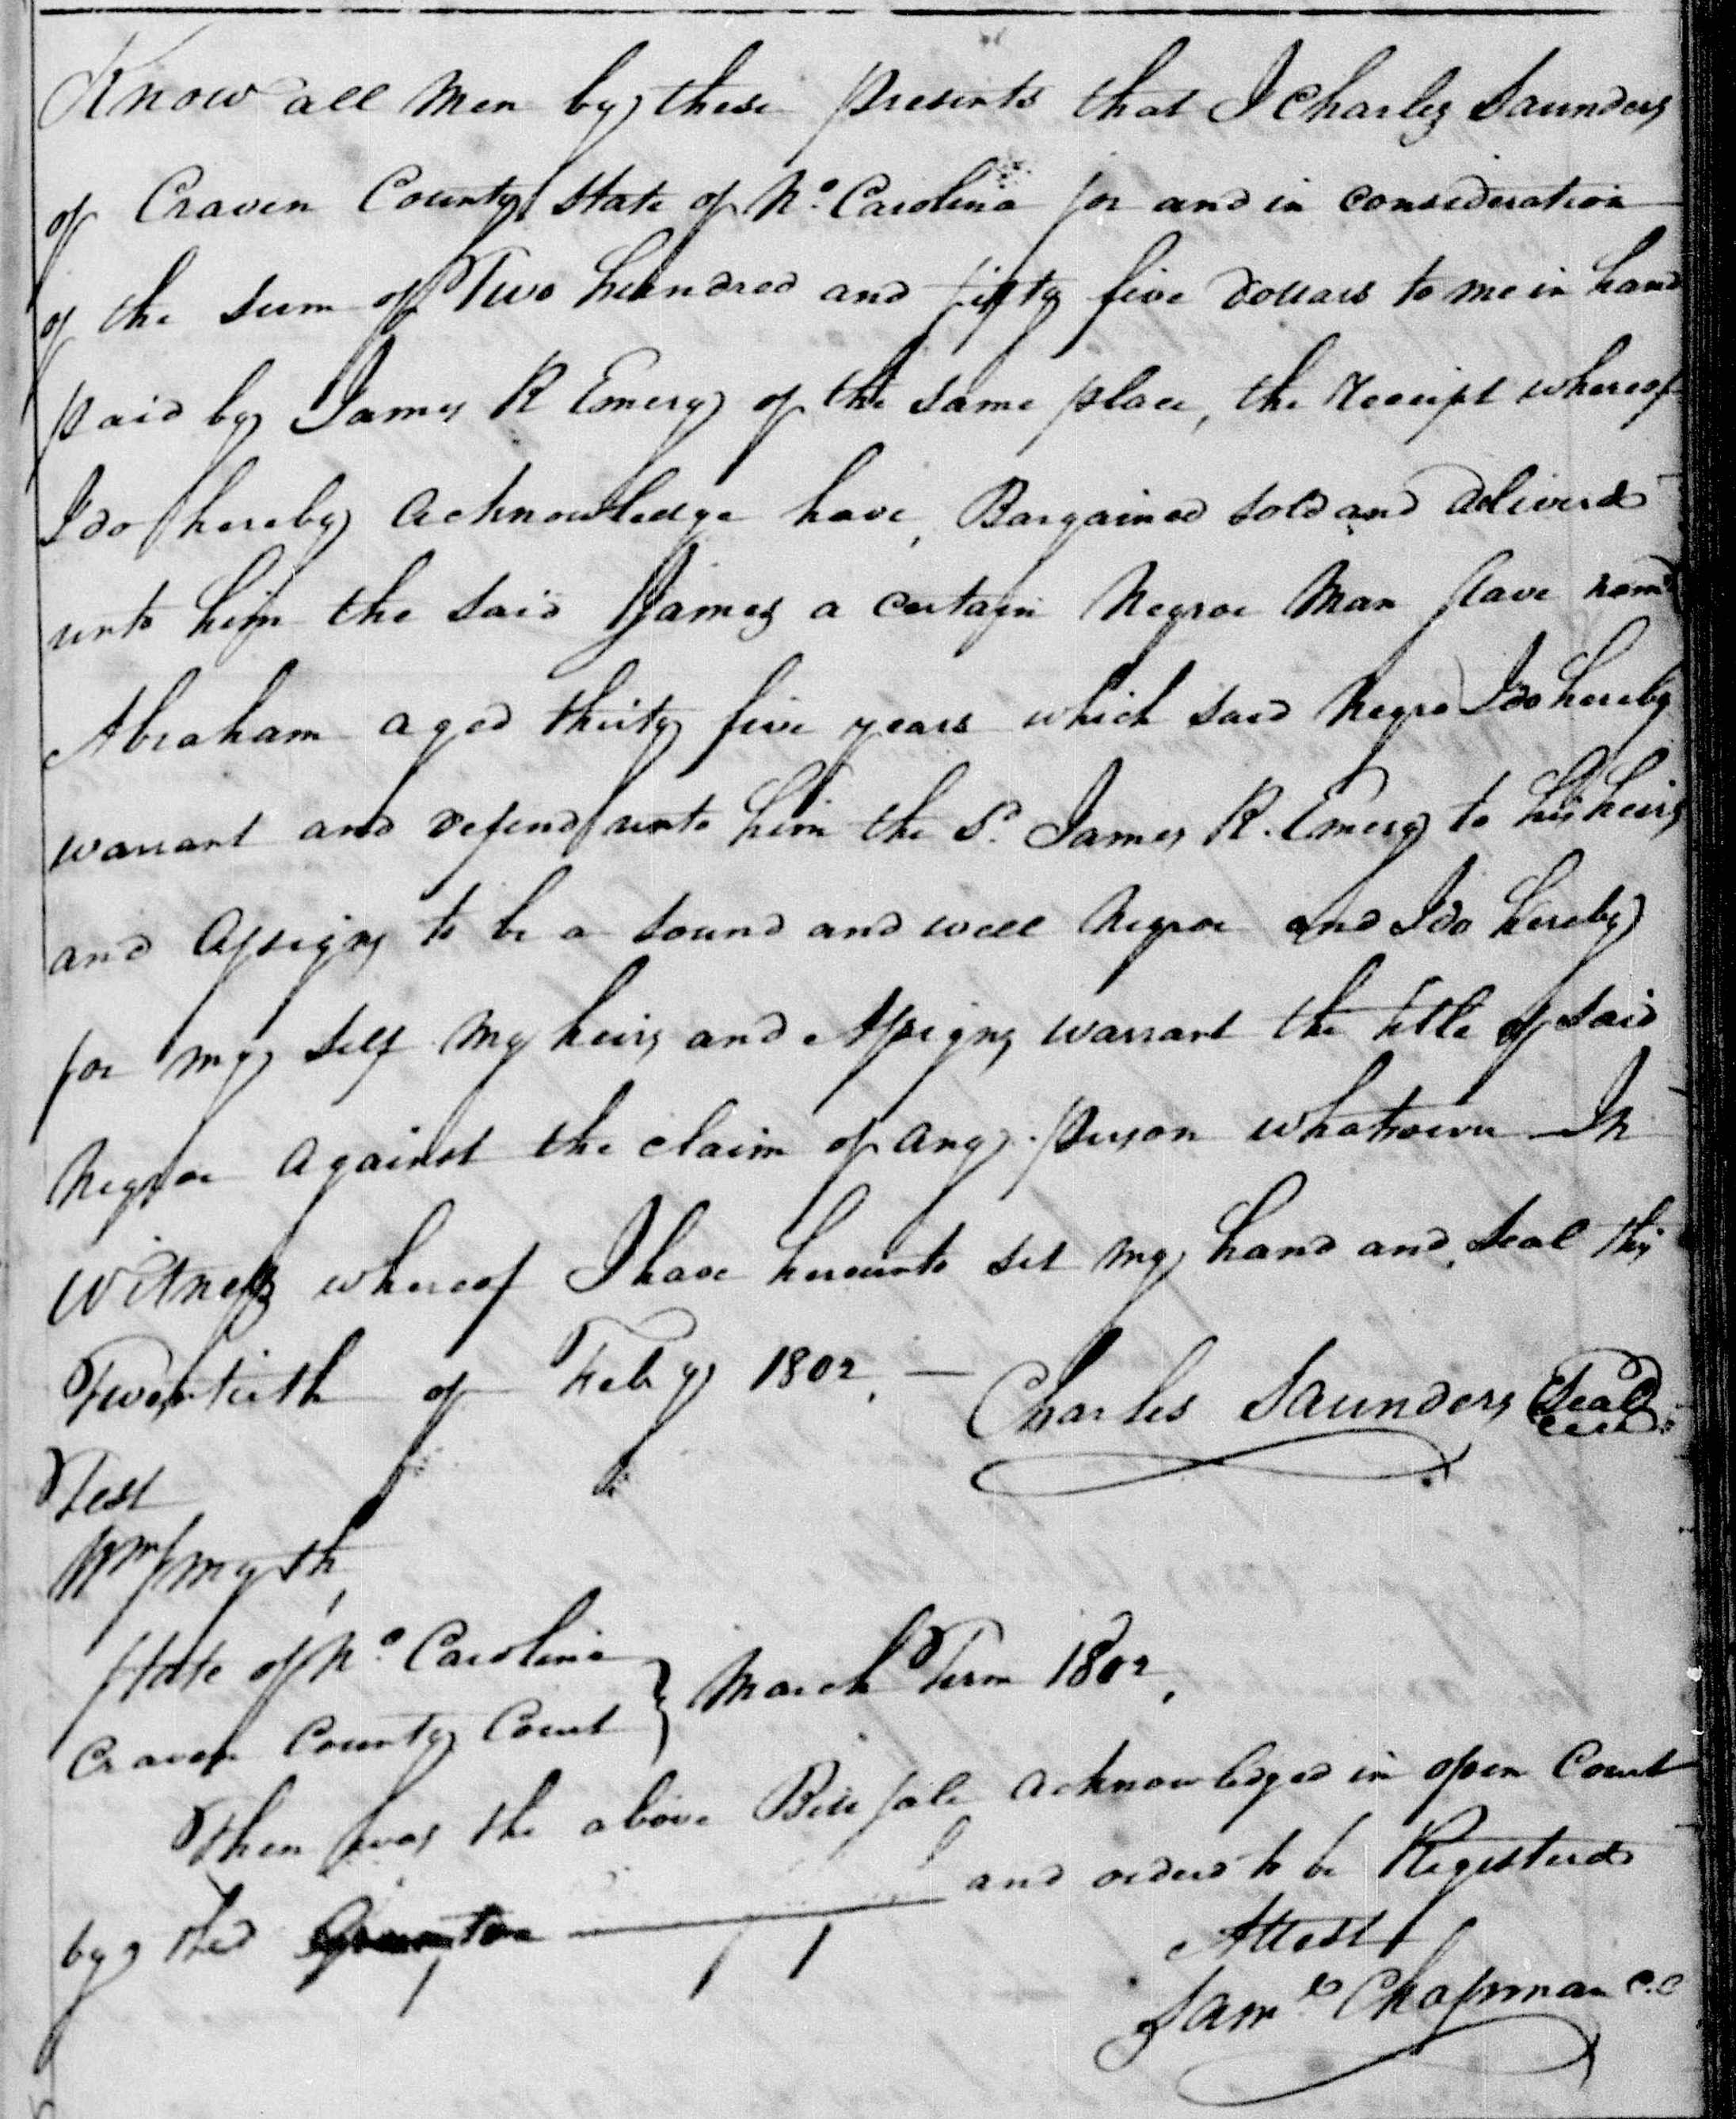 Know all Men by these presents that I Charles Saunders
of Craven County State of No. Carolina for and in consideration
of the sum of Two hundred and fifty five Dollars to me in hand
paid by James R Emery of the same place, the Receipt whereof
I do hereby acknowledge have, Bargained sold and deliverd
unto him the said James a certain Negroe Man slave namd
Abraham aged thirty five years which said Negro I do hereby
warrant and defend unto him the Sd. James R. Emery to his heirs
and Assigns to be a sound and well Negroe and I do hereby
for my self my heirs and Assigns warrant the title of said
Negroe against the claim of any person whatsoever In
Witness whereof I have hereunto set my hand and seal this
Twentieth of Feby 1802. — Charles Saunders Seal
Test
Wm Smyth
State of No. Carolina
Craven County Court } March Term 1802.
Then was the above Bill Sale acknowledged in open Court
by the and orderd to be Registerd
Attest
Saml. Chapman C.C